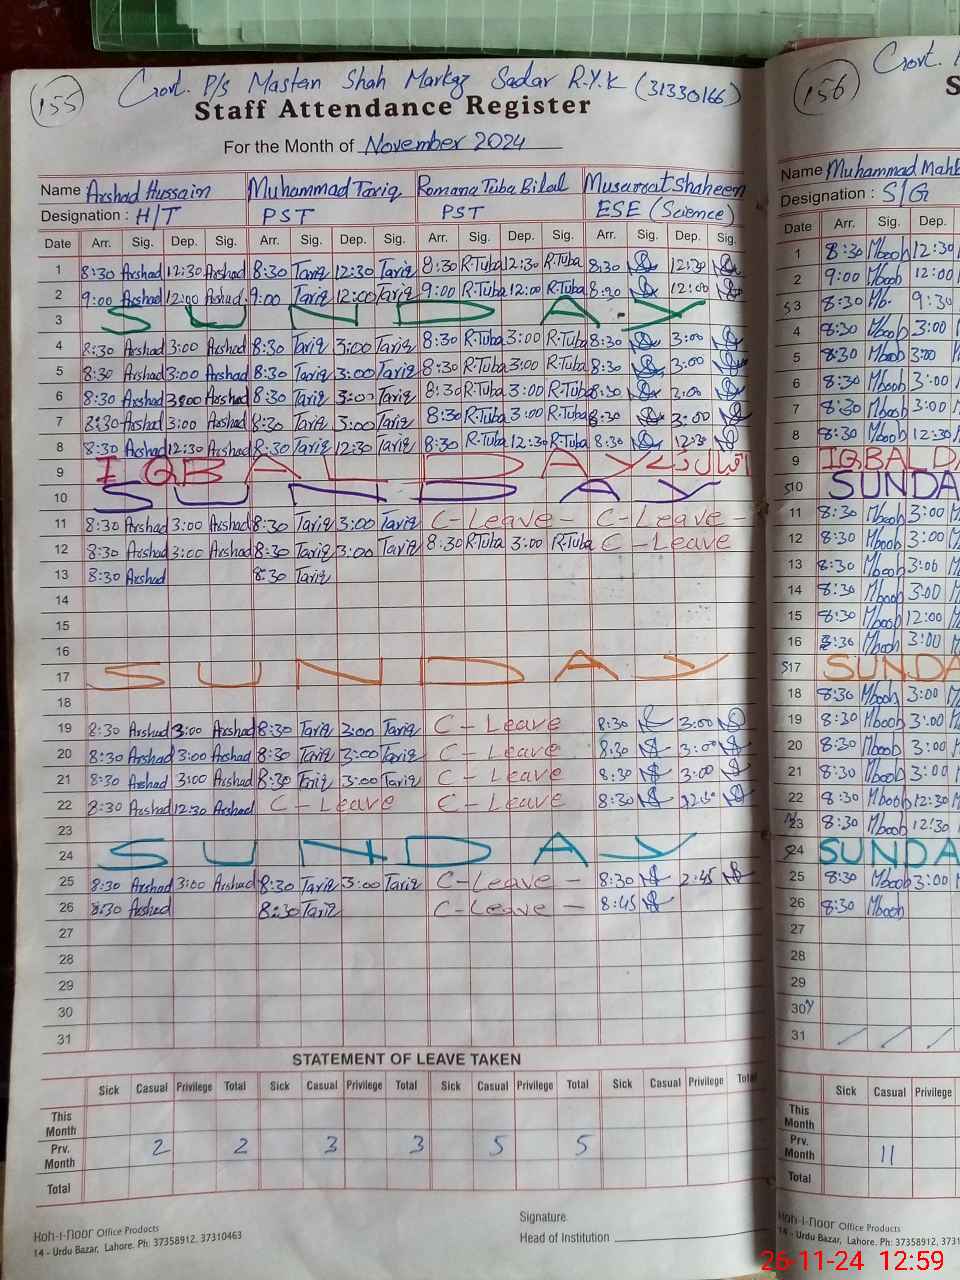 155 Govt. P/s Mastan Shah Markaz Sadar R.Y.K (31330166)
Staff Attendance Register
For the Month of November 2024
Name Arshad Hussain Muhammad Tariq Romana Tuba Bilal Musarrat Shaheen
Designation : H/T PST PST ESE (Science)
Date Arr. Sig. Dep. Sig. Arr. Sig. Dep. Sig. Arr. Sig. Dep. Sig. Arr. Sig. Dep. Sig.
1 8:30 Arshad 12:30 Arshad 8:30 Tariq 12:30 Tariq 8:30 R.Tuba 12:30 R.Tuba 8:30 12:30
2 9:00 Arshad 12:00 Arshad 9:00 Tariq 12:00 Tariq 9:00 R.Tuba 12:00 R.Tuba 8:30 12:00
3 SUNDAY
4 8:30 Arshad 3:00 Arshad 8:30 Tariq 3:00 Tariq 8:30 R.Tuba 3:00 R.Tuba 8:30 3:00
5 8:30 Arshad 3:00 Arshad 8:30 Tariq 3:00 Tariq 8:30 R.Tuba 3:00 R.Tuba 8:30 3:00
6 8:30 Arshad 3:00 Arshad 8:30 Tariq 3:00 Tariq 8:30 R.Tuba 3:00 R.Tuba 8:30 3:00
7 8:30 Arshad 3:00 Arshad 8:30 Tariq 3:00 Tariq 8:30 R.Tuba 3:00 R.Tuba 8:30 3:00
8 8:30 Arshad 12:30 Arshad 8:30 Tariq 12:30 Tariq 8:30 R.Tuba 12:30 R.Tuba 8:30 12:30
9 IQBAL DAY اقبال ڈے
10 SUNDAY
11 8:30 Arshad 3:00 Arshad 8:30 Tariq 3:00 Tariq C-Leave - C-Leave -
12 8:30 Arshad 3:00 Arshad 8:30 Tariq 3:00 Tariq 8:30 R.Tuba 3:00 R.Tuba C-Leave
13 8:30 Arshad 8:30 Tariq
14
15
16
17 SUNDAY
18
19 8:30 Arshad 3:00 Arshad 8:30 Tariq 3:00 Tariq C-Leave 8:30 3:00
20 8:30 Arshad 3:00 Arshad 8:30 Tariq 3:00 Tariq C-Leave 8:30 3:00
21 8:30 Arshad 3:00 Arshad 8:30 Tariq 3:00 Tariq C-Leave 8:30 3:00
22 8:30 Arshad 12:30 Arshad C-Leave C-Leave 8:30 12:30
23
24 SUNDAY
25 8:30 Arshad 3:00 Arshad 8:30 Tariq 3:00 Tariq C-Leave - 8:30 2:45
26 8:30 Arshad 8:30 Tariq C-Leave - 8:45
27
28
29
30
31
STATEMENT OF LEAVE TAKEN
Sick Casual Privilege Total Sick Casual Privilege Total Sick Casual Privilege Total Sick Casual Privilege Total
This Month
Prv. Month 2 2 3 3 5 5
Total
Signature
Head of Institution
Koh-i-noor Office Products
14 - Urdu Bazar, Lahore. Ph: 37358912, 37310463
156 Govt.
S
Name Muhammad Mahb
Designation : S/G
Date Arr. Sig. Dep.
1 8:30 Mboob 12:30
2 9:00 Mboob 12:00
S3 8:30 Mb. 9:30
4 8:30 Mboob 3:00
5 8:30 Mboob 3:00
6 8:30 Mboob 3:00
7 8:30 Mboob 3:00
8 8:30 Mboob 12:30
9 IQBAL DA
S10 SUNDA
11 8:30 Mboob 3:00
12 8:30 Mboob 3:00
13 8:30 Mboob 3:00
14 8:30 Mboob 3:00
15 8:30 Mboob 12:00
16 8:30 Mboob 3:00
S17 SUNDA
18 8:30 Mboob 3:00
19 8:30 Mboob 3:00
20 8:30 Mboob 3:00
21 8:30 Mboob 3:00
22 8:30 Mboob 12:30
23 8:30 Mboob 12:30
S24 SUNDA
25 8:30 Mboob 3:00
26 8:30 Mboob
27
28
29
30
31
Sick Casual Privilege
This Month
Prv. Month 11
Total
Koh-i-noor Office Products
14 - Urdu Bazar, Lahore. Ph: 37358912, 3731
26-11-24 12:59